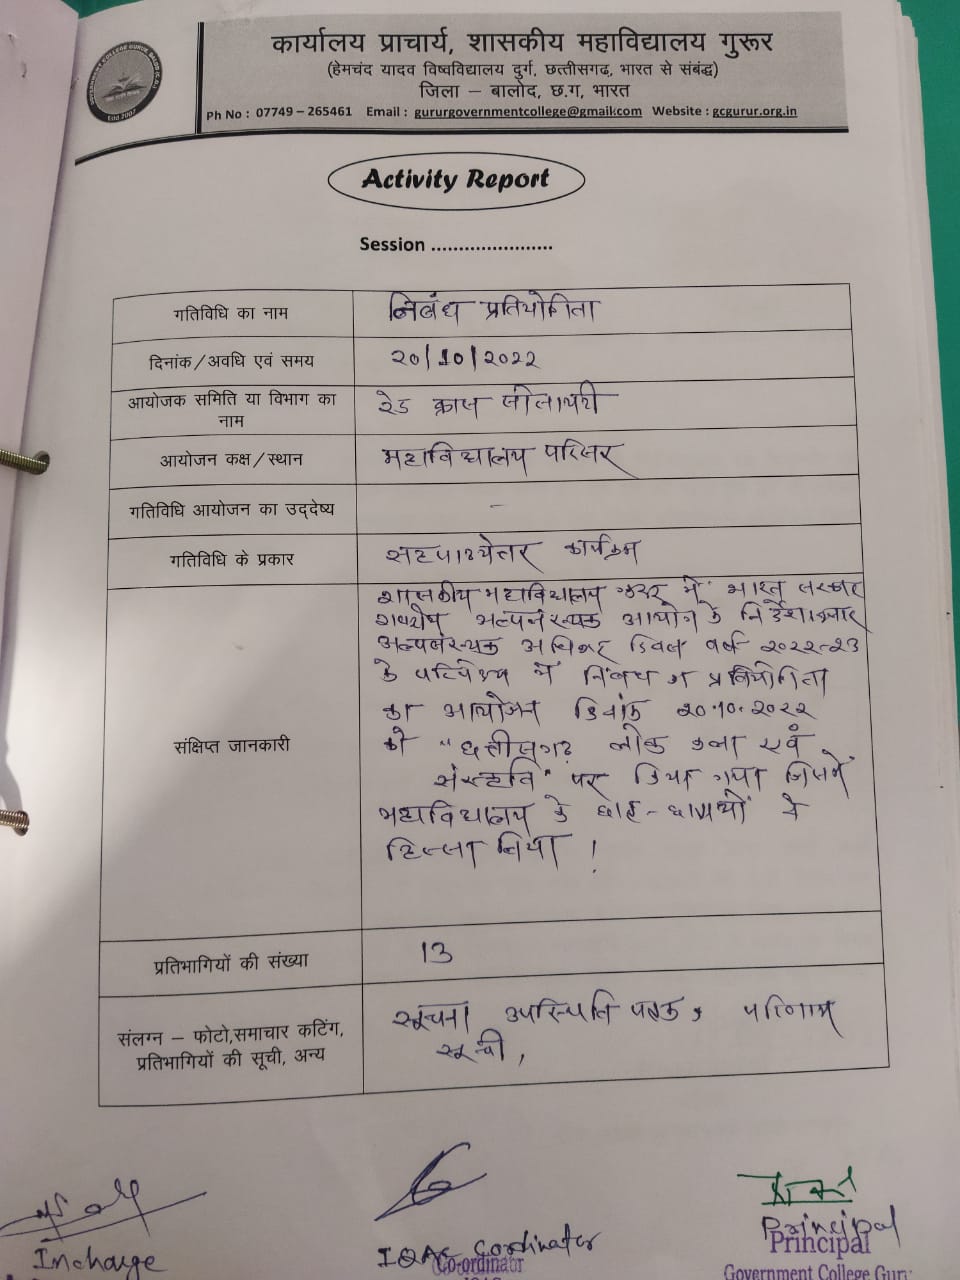 कार्यालय प्राचार्य, शासकीय महाविद्यालय गुरूर
(हेमचंद यादव विष्वविद्यालय दुर्ग, छत्तीसगढ, भारत से संबंद्ध)
जिला – बालोद, छ.ग, भारत
Ph No : 07749 – 265461 Email : gururgovernmentcollege@gmaikcom Website : gcgurur.org.in
Activity Report
Session ......................
गतिविधि का नाम
निबंध प्रतियोगिता
दिनांक/अवधि एवं समय
२०/10/२०२२
आयोजक समिति या विभाग का
नाम
रेड क्रास सोसायटी
आयोजन कक्ष/स्थान
महाविद्यालय परिसर
गतिविधि आयोजन का उद्देष्य
-
गतिविधि के प्रकार
सहपाठ्येत्तर कार्यक्रम
संक्षिप्त जानकारी
शासकीय महाविद्यालय गुरुर में भारत सरकार
अल्पसंख्यक आयोग के निर्देशानुसार
अल्पसंख्यक अधिकार दिवस वर्ष २०२२-२३
के परिपेक्ष्य में निबंध प्रतियोगिता
का आयोजन दिनांक २०.१०.२०२२
को "छत्तीसगढ़ लोक कला एवं
संस्कृति" पर किया गया जिसमें
महाविद्यालय के छात्र-छात्राओं ने
हिस्सा लिया !
प्रतिभागियों की संख्या
13
संलग्न – फोटो,समाचार कटिंग,
प्रतिभागियों की सूची, अन्य
सूचना उपस्थिति पत्रक, परिणाम
सूची,
Incharge
IQAC Coordinator
Co-ordinator
Principal
Principal
Government College Guru